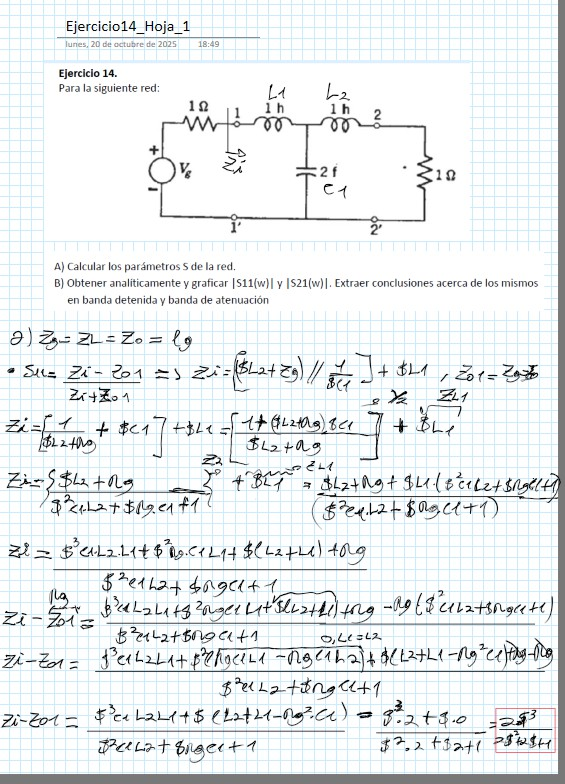 Ejercicio14_Hoja_1
lunes, 20 de octubre de 2025 18:49
Ejercicio 14.
Para la siguiente red:
L1 L2
1 Ω 1 1 h 1 h 2
+ Vg - Zi 2 f C1 1 Ω
1' 2'
A) Calcular los parámetros S de la red.
B) Obtener analíticamente y graficar |S11(w)| y |S21(w)|. Extraer conclusiones acerca de los mismos
en banda detenida y banda de atenuación
a) Zg = ZL = Zo = rg
• S11 = (Zi - Zo1)/(Zi + Zo1) => Zi = [($L2+Zg) // 1/$C1] + $L1 , Zo1 = Zg
Zi = [1/($L2+rg) + $C1] + $L1 = [(1+($L2+rg)$C1)/($L2+rg)] + $L1
Y2 ZL1
Zi = {($L2+rg)/($²C1L2+$rgC1+1)} + $L1 = ($L2+rg+$L1($²C1L2+$rgC1+1))/($²C1L2+$rgC1+1)
Z2 ZL1
Zi = ($³C1L2L1+$²rgC1L1+$(L2+L1)+rg)/($²C1L2+$rgC1+1)
rg
Zi - Zo1 = ($³C1L2L1+$²rgC1L1+$(L2+L1)+rg-rg($²C1L2+$rgC1+1))/($²C1L2+$rgC1+1)
0, L1=L2
Zi-Zo1 = ($³C1L2L1+$²(rgC1L1-rgC1L2)+$(L2+L1-rg²C1)+rg-rg)/($²C1L2+$rgC1+1)
Zi-Zo1 = ($³C1L2L1+$(L2+L1-rg².C1))/($²C1L2+$rgC1+1) = ($³.2+$.0)/($².2+$2+1) = 2$³/(2$²+2$+1)